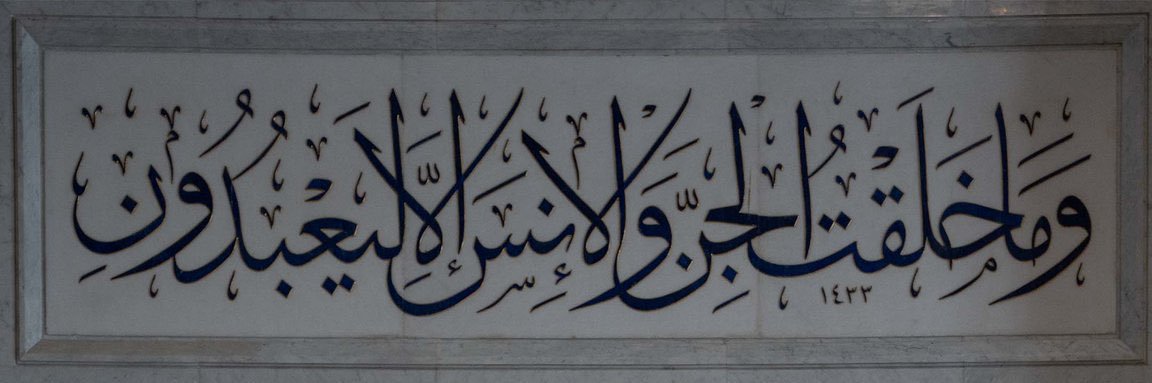 وَمَا خَلَقْتُ الْجِنَّ وَالْإِنسَ إِلَّا لِيَعْبُدُونِ
١٤٣٣